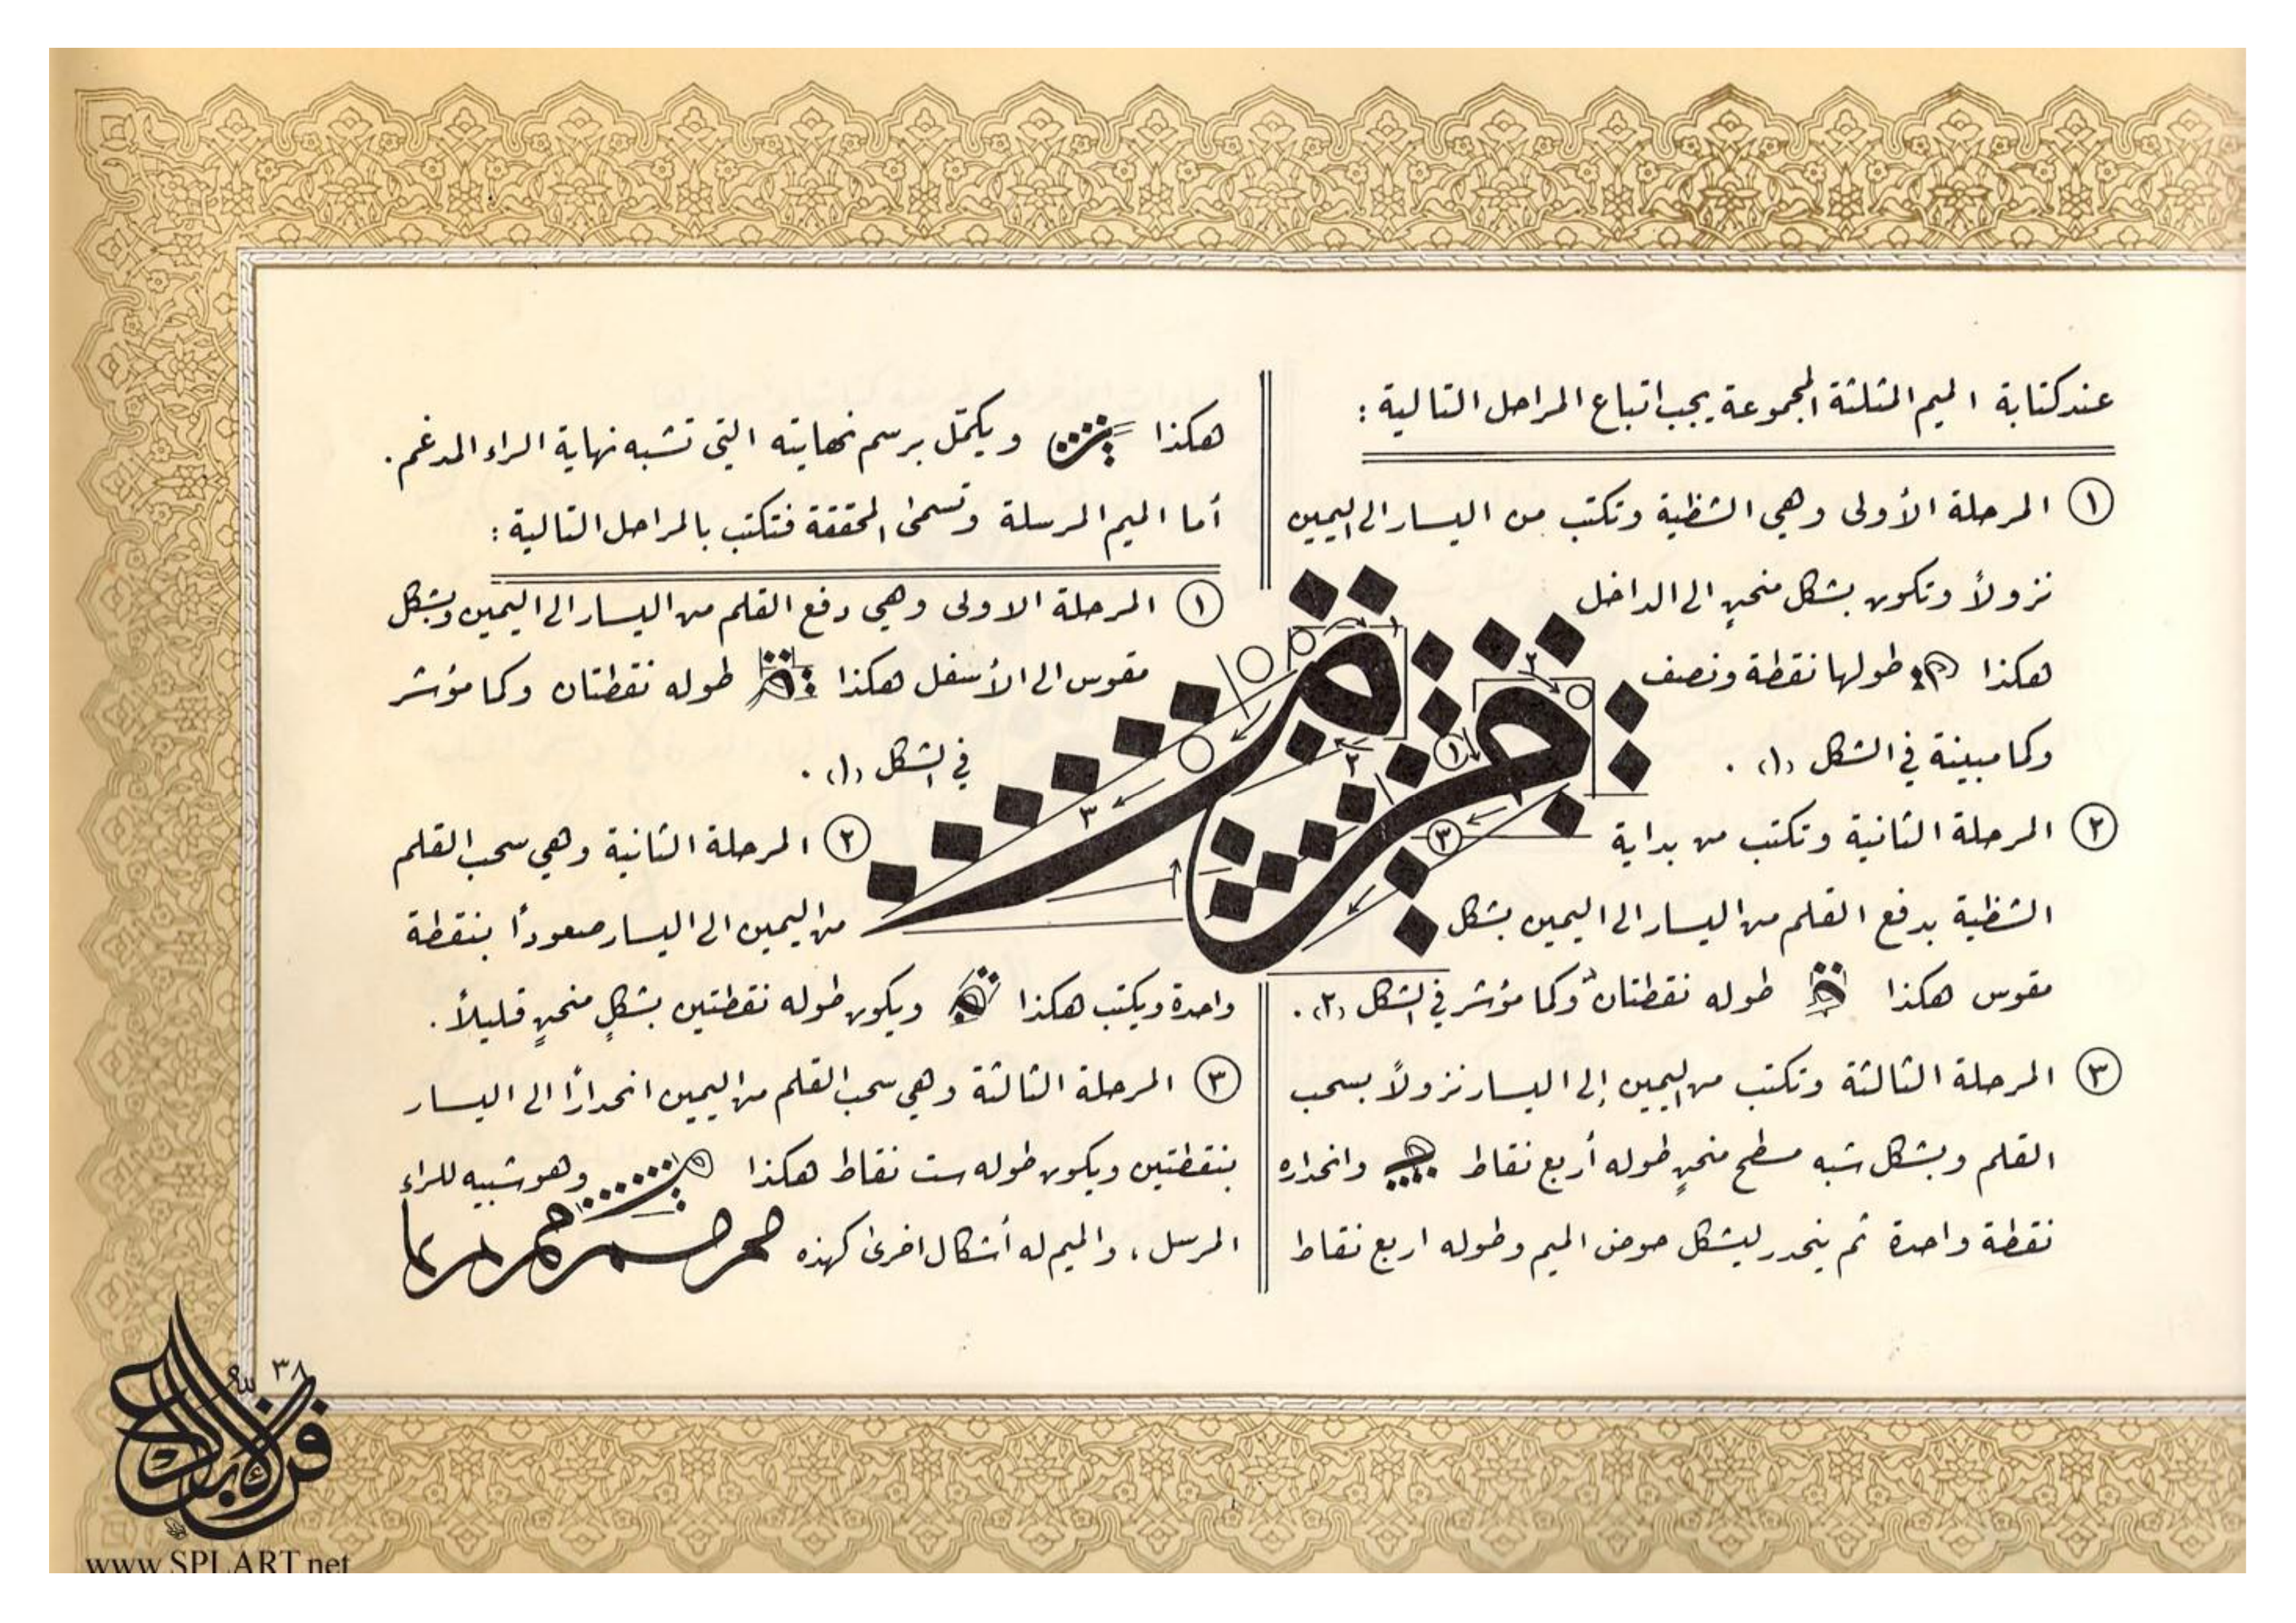 عند كتابة الميم المثلثة المجموعة يجب اتباع المراحل التالية :
١ المرحلة الأولى وهي الشظية وتكتب من اليسار الى اليمين
نزولاً وتكون بشكل منحنٍ الى الداخل
هكذا طولها نقطة ونصف
وكما مبينة في الشكل (١) .
٢ المرحلة الثانية وتكتب من بداية
الشظية بدفع القلم من اليسار الى اليمين بشكل
مقوس هكذا طوله نقطتان وكما مؤشر في الشكل (٢) .
٣ المرحلة الثالثة وتكتب من اليمين إلى اليسار نزولاً بسحب
القلم وبشكل شبه مسطح منحنٍ طوله أربع نقاط وانحداره
نقطة واحدة ثم ينحدر ليشكل حوض الميم وطوله اربع نقاط
هكذا ويكمّل برسم نهايته التي تشبه نهاية الراء المدغم .
أما الميم المرسلة وتسمى المحققة فتكتب بالمراحل التالية :
١ المرحلة الاولى وهي دفع القلم من اليسار الى اليمين وبشكل
مقوس الى الأسفل هكذا طوله نقطتان وكما مؤشر
في الشكل (١) .
٢ المرحلة الثانية وهي سحب القلم
من اليمين الى اليسار صعوداً بنقطة
واحدة ويكتب هكذا ويكون طوله نقطتين بشكلٍ منحنٍ قليلاً .
٣ المرحلة الثالثة وهي سحب القلم من اليمين انحداراً الى اليسار
بنقطتين ويكون طوله ست نقاط هكذا وهو شبيه للراء
المرسل ، والميم له أشكال اخرى كهذه
١
٢
٣
١
٢
٣
٣٨
www.SPLART.net